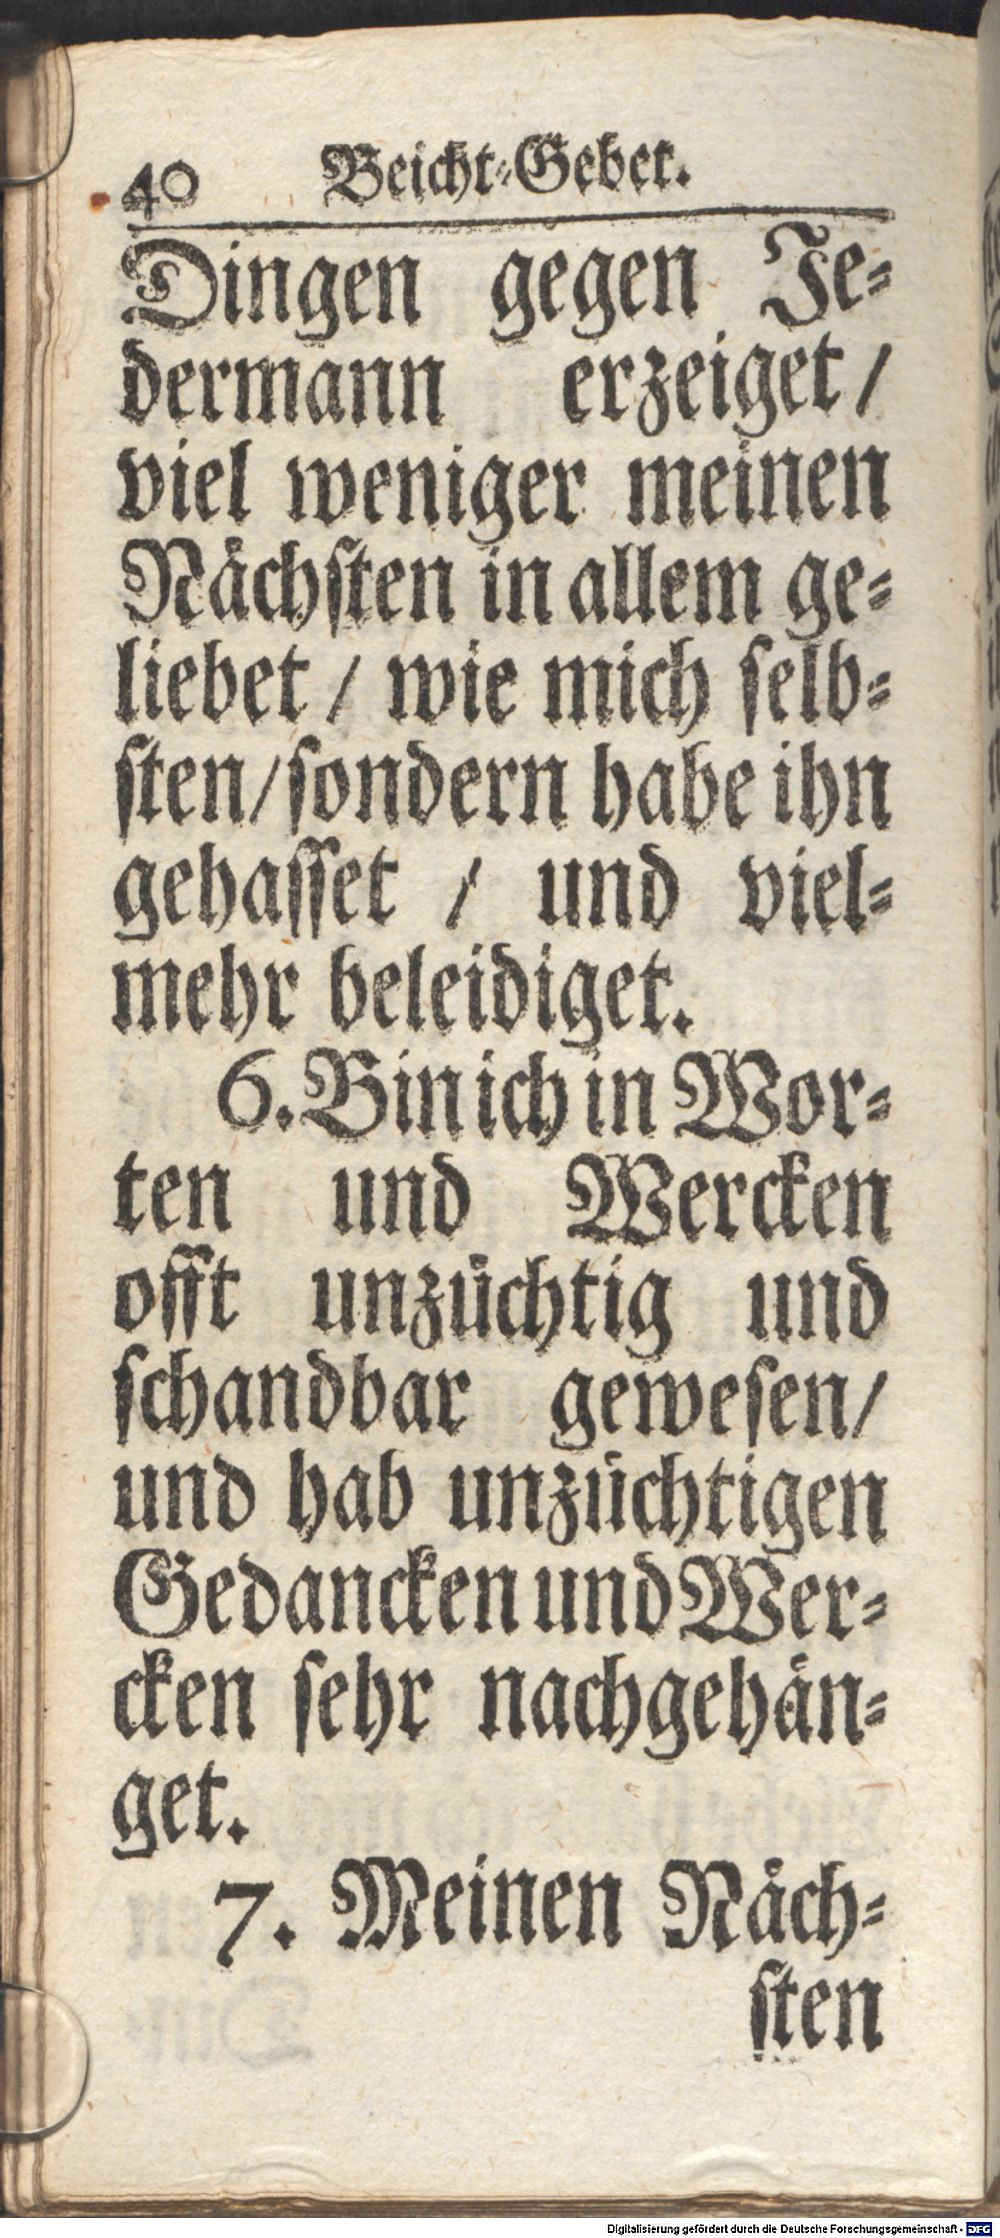 40 Beicht-Gebet.
Dingen gegen Je-
dermann erzeiget /
viel weniger meinen
Nächsten in allem ge-
liebet / wie mich selb-
sten / sondern habe ihn
gehasset / und viel-
mehr beleidiget.
6. Bin ich in Wor-
ten und Wercken
offt unzüchtig und
schandbar gewesen /
und hab unzüchtigen
Gedancken und Wer-
cken sehr nachgehän-
get.
7. Meinen Näch-
sten
Digitalisierung gefördert durch die Deutsche Forschungsgemeinschaft - DFG